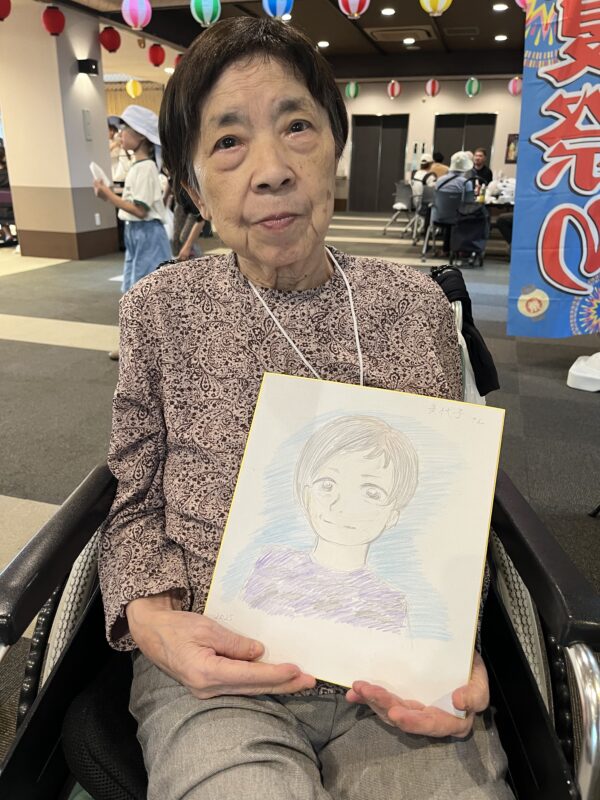 夏祭り
代子さん
2025